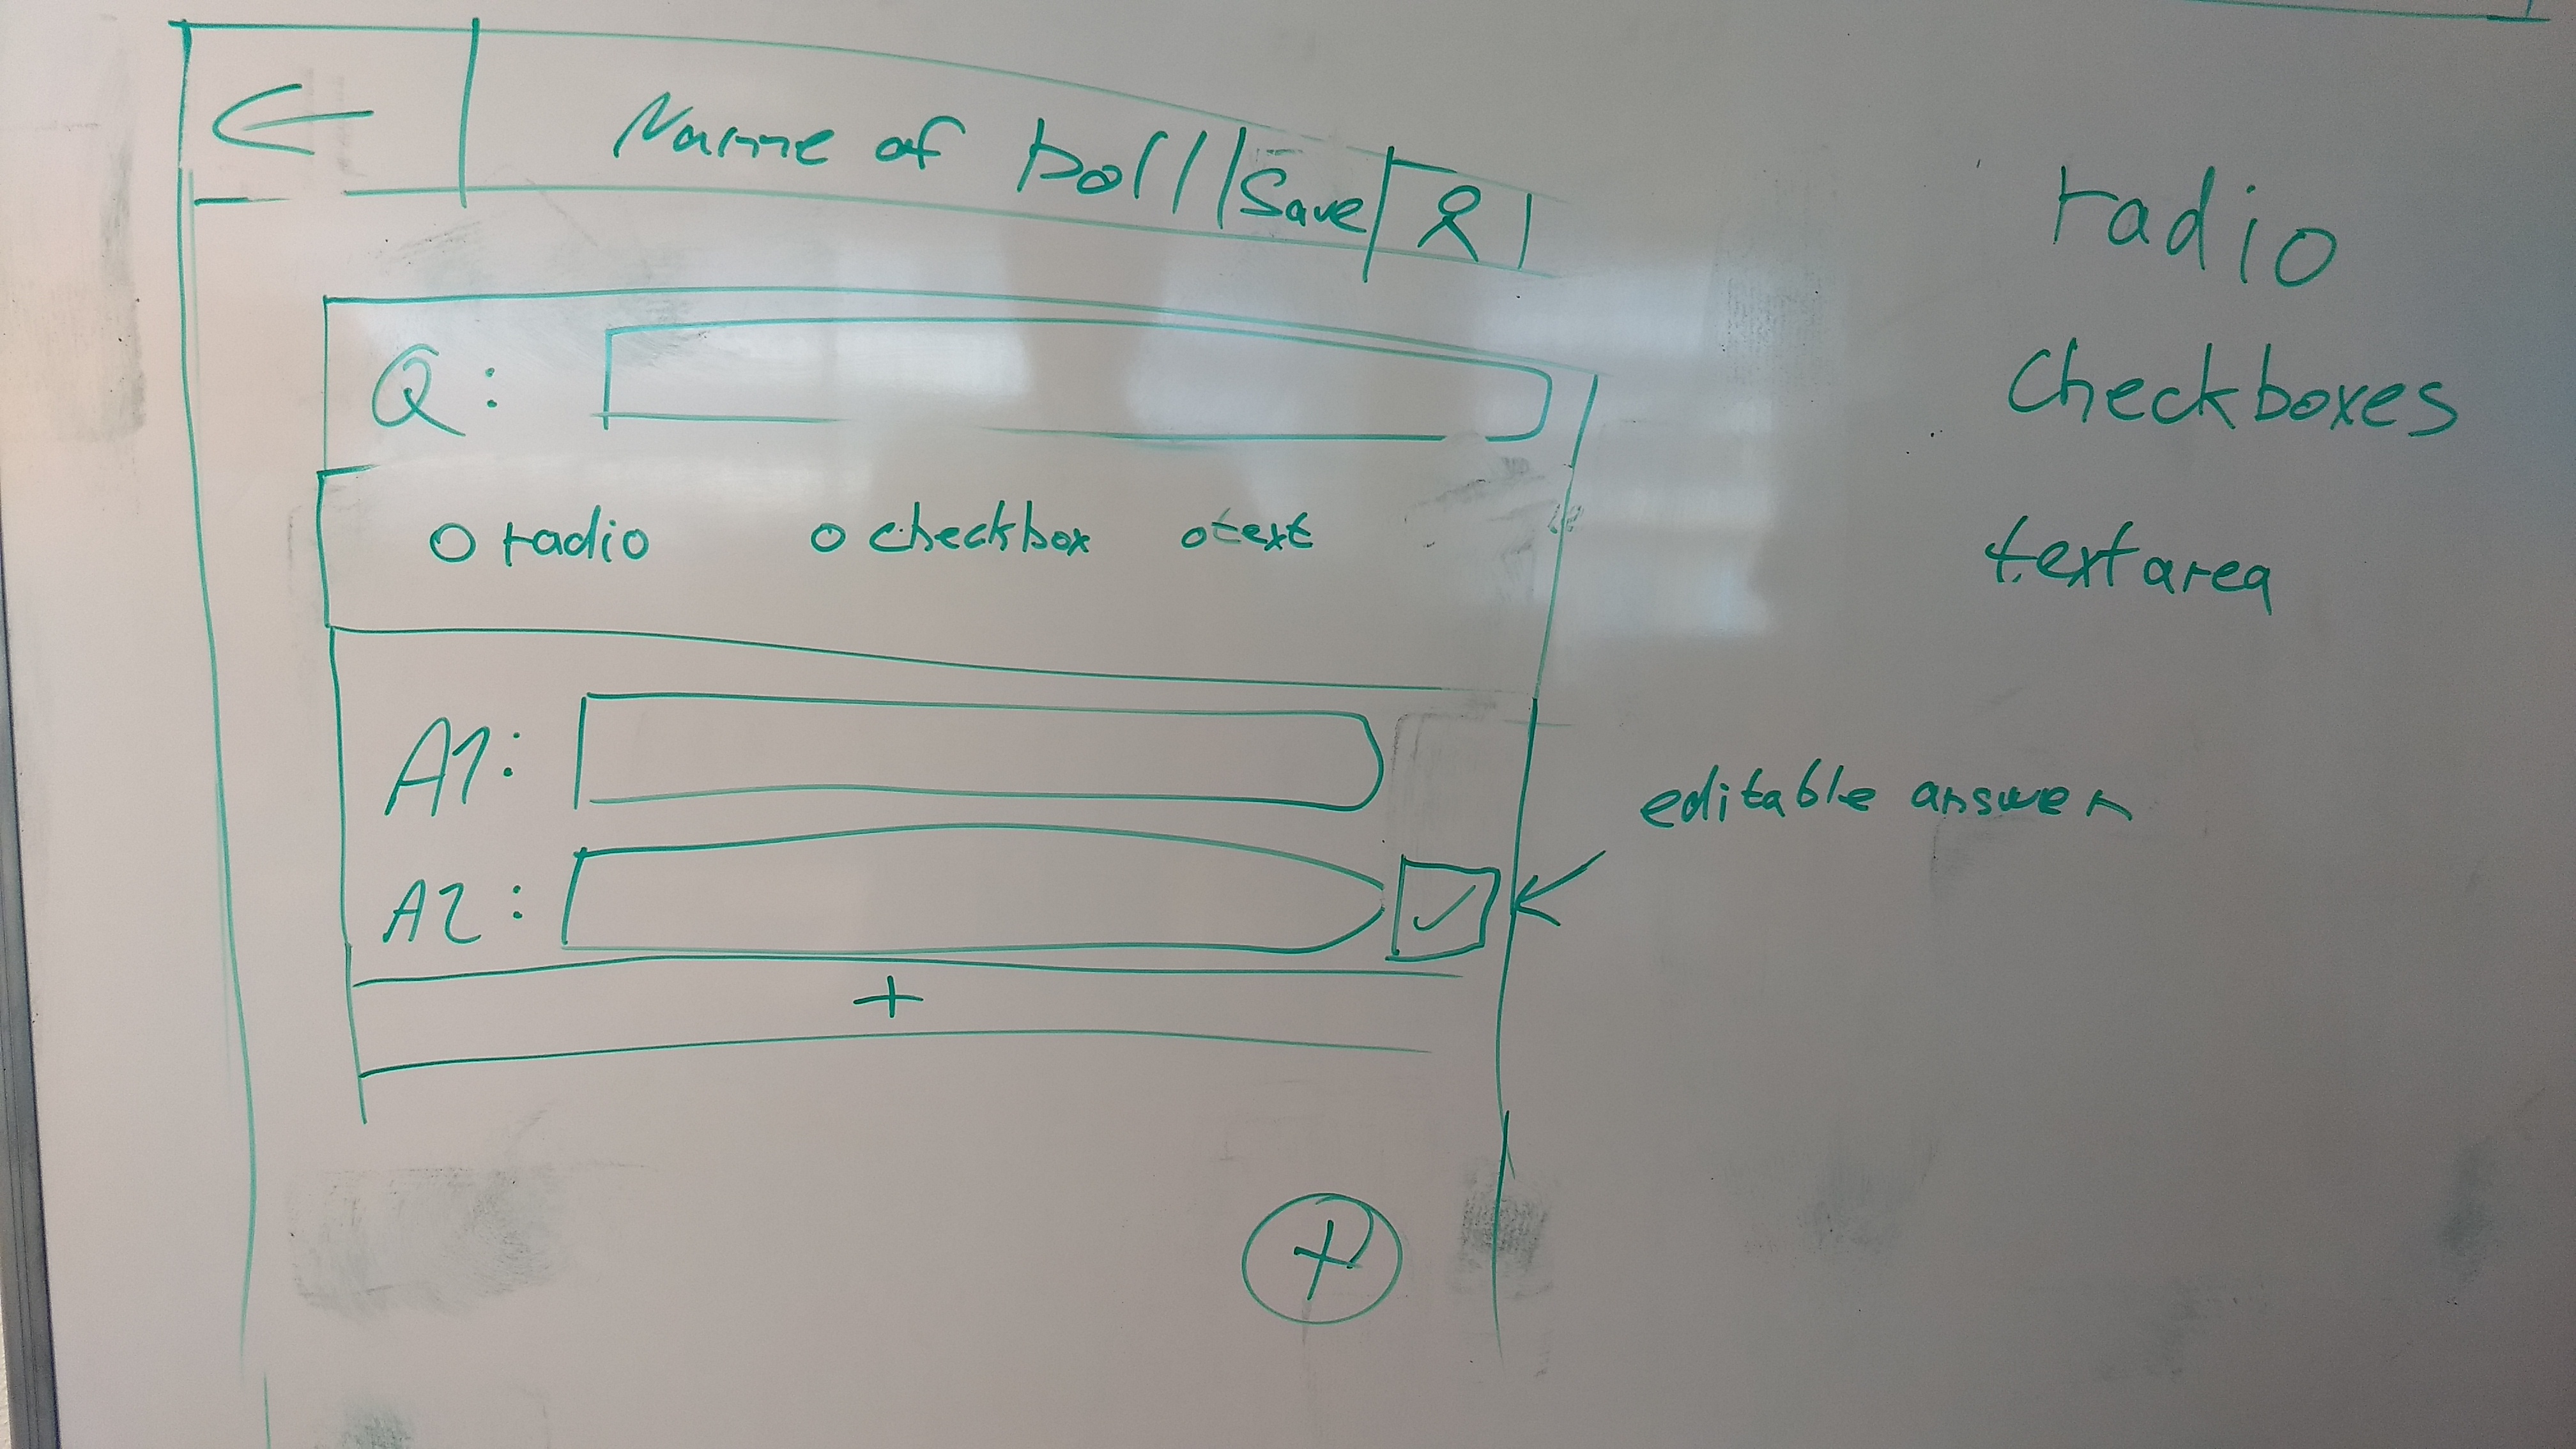 ← Name of poll Save
Q:
radio checkbox text
A1:
A2: ✓
+
+
radio
Checkboxes
textarea
editable answer